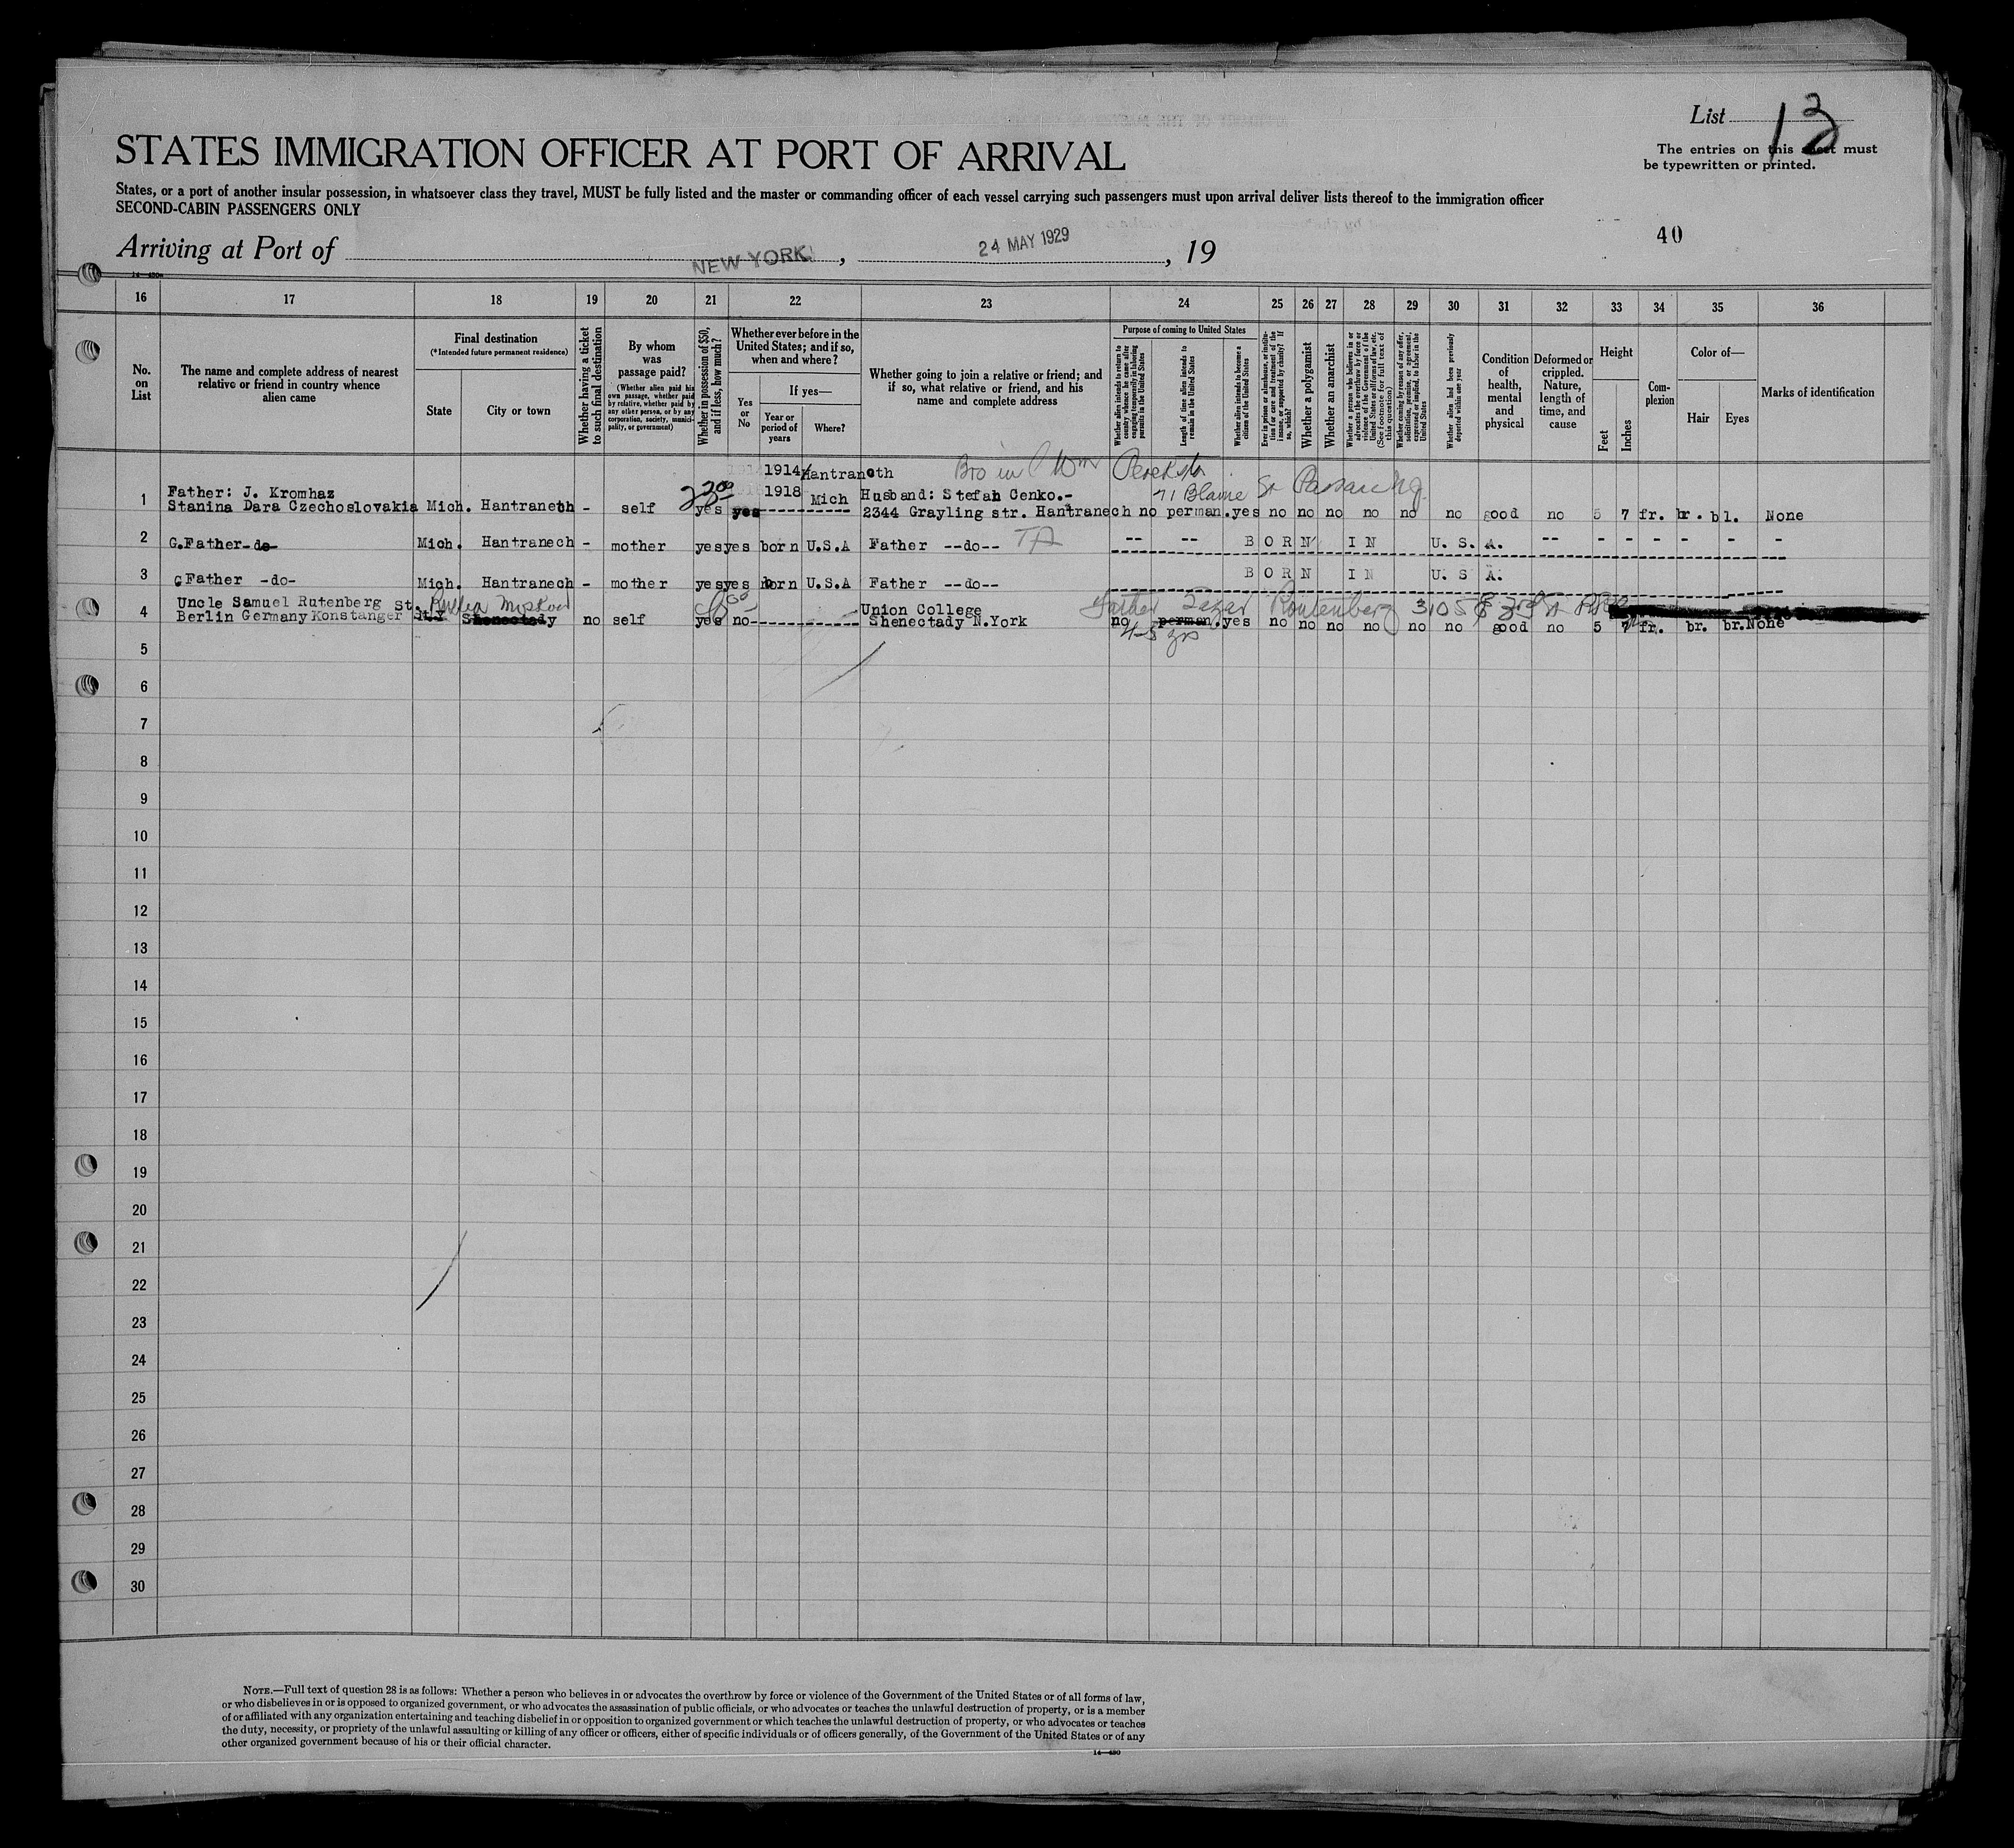 List 13
The entries on this sheet must
be typewritten or printed.
STATES IMMIGRATION OFFICER AT PORT OF ARRIVAL
States, or a port of another insular possession, in whatsoever class they travel, MUST be fully listed and the master or commanding officer of each vessel carrying such passengers must upon arrival deliver lists thereof to the immigration officer
SECOND-CABIN PASSENGERS ONLY
40
Arriving at Port of NEW YORK, 24 MAY 1929, 19
14-430
16 17 18 19 20 21 22 23 24 25 26 27 28 29 30 31 32 33 34 35 36
No. on List
The name and complete address of nearest relative or friend in country whence alien came
Final destination
(*Intended future permanent residence)
State
City or town
Whether having a ticket to such final destination
By whom was passage paid?
(Whether alien paid his own passage, whether paid by relative, whether paid by any other person, or by any corporation, society, municipality, or government)
Whether in possession of $50, and if less, how much?
Whether ever before in the United States; and if so, when and where?
Yes or No
If yes—
Year or period of years
Where?
Whether going to join a relative or friend; and if so, what relative or friend, and his name and complete address
Purpose of coming to United States
Whether alien intends to return to country whence he came after engaging temporarily in laboring pursuits in the United States
Length of time alien intends to remain in the United States
Whether alien intends to become a citizen of the United States
Ever in prison or almshouse, or institution for care and treatment of the insane, or supported by charity? If so, which?
Whether a polygamist
Whether an anarchist
Whether a person who believes in or advocates the overthrow by force or violence of the Government of the United States or all forms of law, etc. (See footnote for full text of this question)
Whether coming by reason of any offer, solicitation, promise, or agreement, expressed or implied, to labor in the United States
Whether alien had been previously deported within one year
Condition of health, mental and physical
Deformed or crippled. Nature, length of time, and cause
Height
Feet
Inches
Complexion
Color of—
Hair
Eyes
Marks of identification
1914 Hantranoth Bro in l Wm
1918 Mich 71 Blaine St Passaic NJ
1 Father: J. Kromhaz Husband: Stefan Cenko.-
Stanina Dara Czechoslovakia Mich. Hantranech - self yes yes 2344 Grayling str. Hantranech no perman. yes no no no no no no good no 5 7 fr. br. bl. None
2 G.Father-do- Mich. Hantranech - mother yes yes born U.S.A Father --do-- TA -- -- BORN IN U. S. A. -- - - - - - -
3 GFather -do- Mich. Hantranech - mother yes yes born U.S.A Father --do-- BORN IN U. S A.
4 Uncle Samuel Rutenberg St. Russia Moskow Union College Father Lazar Routenberg 3105
Berlin Germany Konstanger Shenectady no self yes no Shenectady N.York no perman. yes no no no no no no good no 5 7 fr. br. br. None
4-5 yrs
5
6
7
8
9
10
11
12
13
14
15
16
17
18
19
20
21
22
23
24
25
26
27
28
29
30
NOTE.—Full text of question 28 is as follows: Whether a person who believes in or advocates the overthrow by force or violence of the Government of the United States or of all forms of law,
or who disbelieves in or is opposed to organized government, or who advocates the assassination of public officials, or who advocates or teaches the unlawful destruction of property, or is a member
of or affiliated with any organization entertaining and teaching disbelief in or opposition to organized government or which teaches the unlawful destruction of property, or who advocates or teaches
the duty, necessity, or propriety of the unlawful assaulting or killing of any officer or officers, either of specific individuals or of officers generally, of the Government of the United States or of any
other organized government because of his or their official character.
14-430